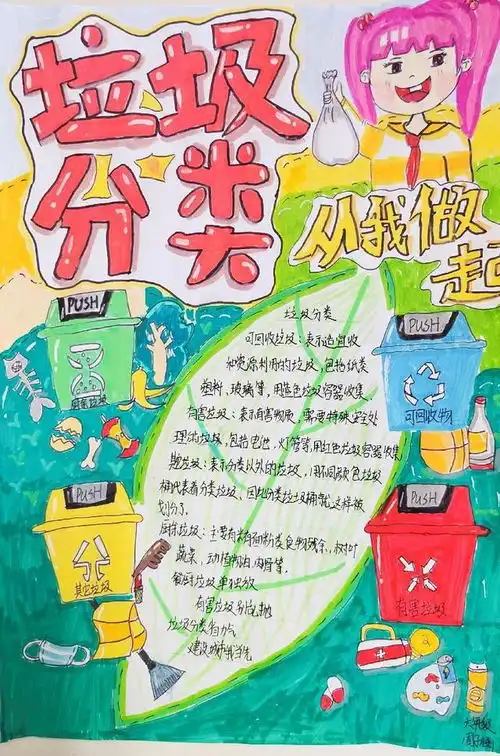 垃圾
分类
从我做
起
垃圾分类
可回收垃圾：表示适宜收
和资源利用的垃圾，包括纸类
塑料、玻璃等，用蓝色垃圾容器收集
有害垃圾：表示有害物质，需要特殊安全处
理的垃圾，包括电池、灯管等，用红色垃圾容器收集
垃圾：表示分类以外的垃圾，用不同颜色垃圾
桶代表着分类垃圾，因此分类垃圾桶就这样被
划分了。
厨余垃圾：主要有
蔬菜、动植物油、肉骨等。
餐厨垃圾单独放
有害垃圾别乱抛
垃圾分类
建设城市我当先
PUSH
厨余垃圾
PUSH
可回收物
PUSH
其它垃圾
PUSH
有害垃圾